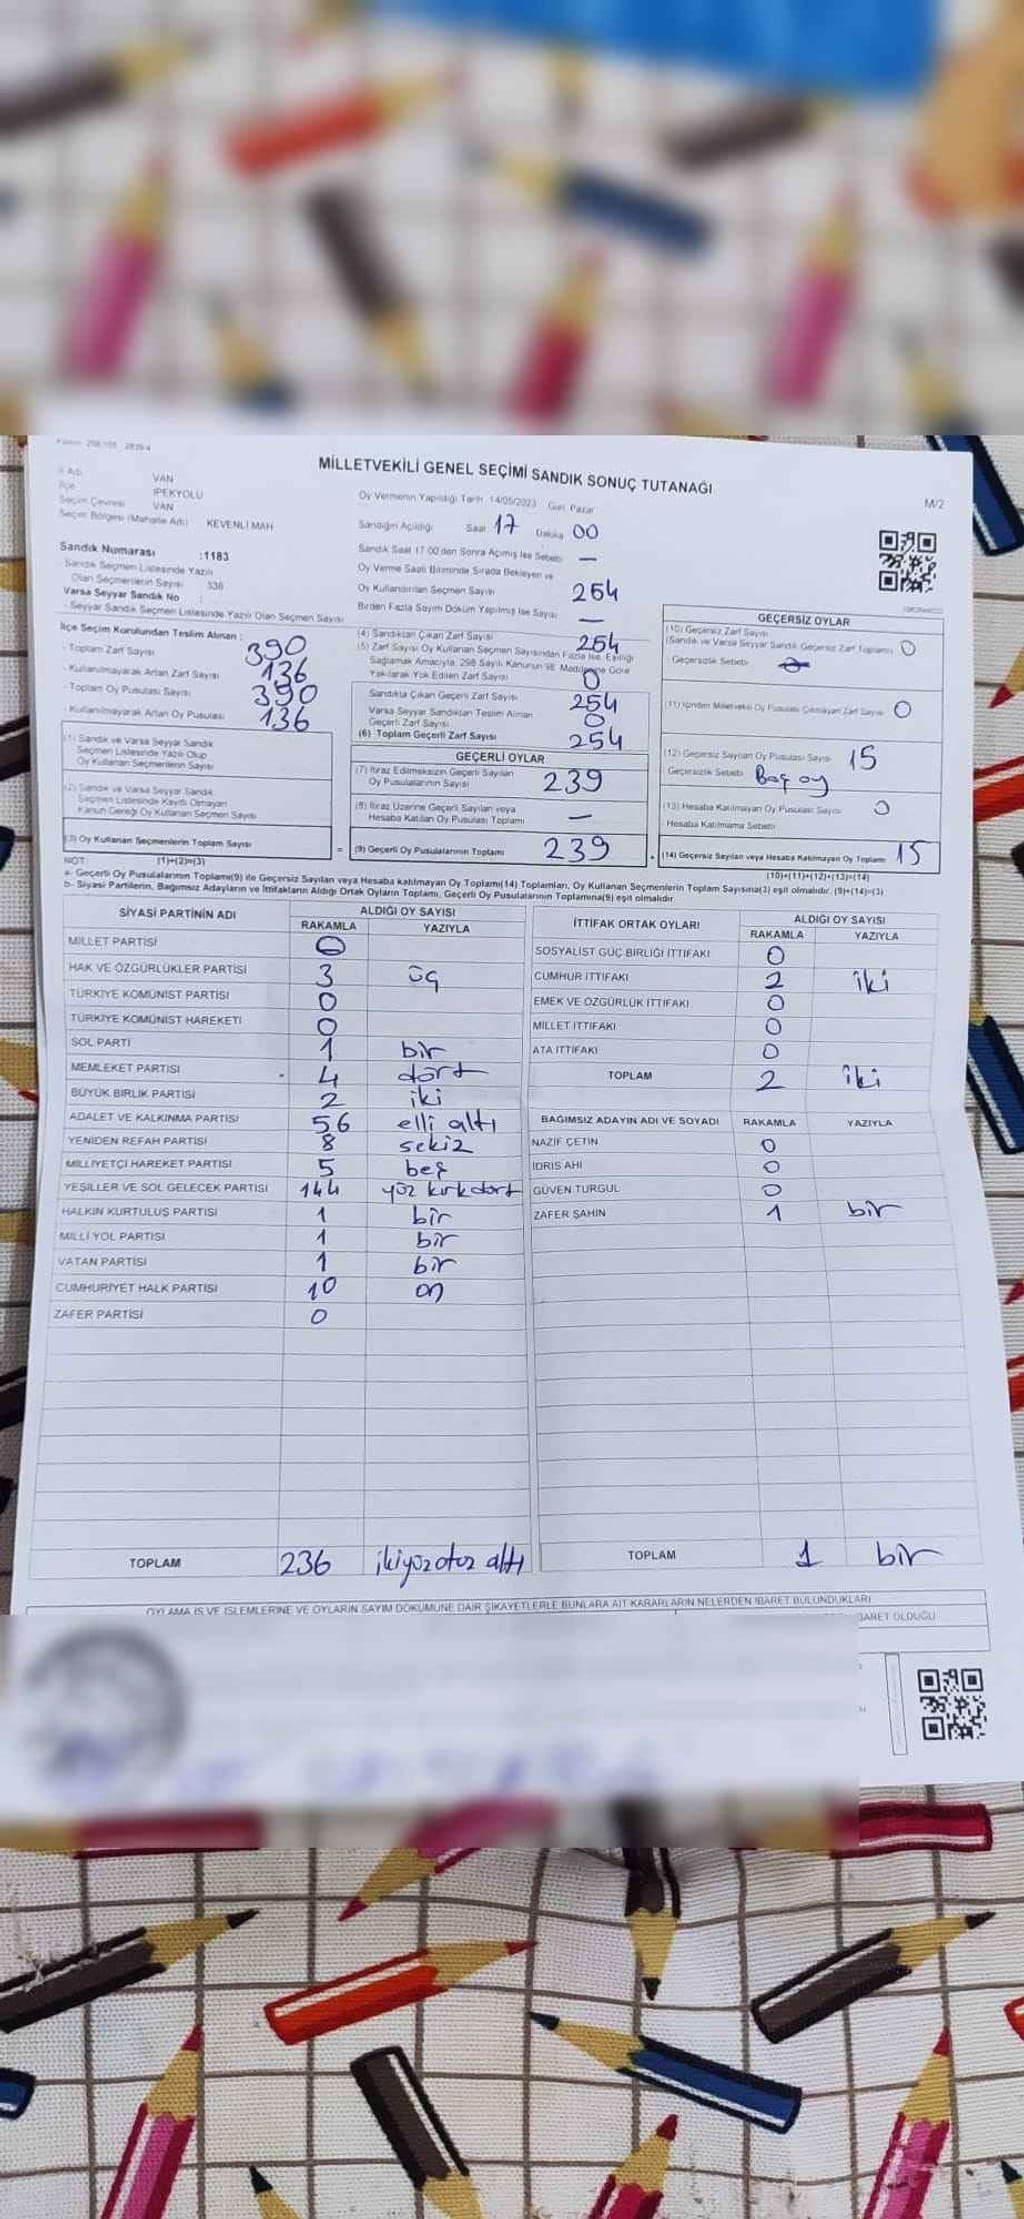 MİLLETVEKİLİ GENEL SEÇİMİ SANDIK SONUÇ TUTANAĞI
M/2
İl Adı VAN
İlçe İPEKYOLU
Seçim Çevresi VAN
Seçim Bölgesi (Mahalle Adı) KEVENLİ MAH
Oy Vermenin Yapıldığı Tarih 14/05/2023 Gün Pazar
Sandığın Açıldığı Saat 17 Dakika 00
Sandık Numarası :1183
Sandık Seçmen Listesinde Yazılı
Olan Seçmenlerin Sayısı 338
Varsa Seyyar Sandık No :
- Seyyar Sandık Seçmen Listesinde Yazılı Olan Seçmen Sayısı
Sandık Saat 17.00'dan Sonra Açılmış İse Sebebi —
Oy Verme Saati Bitiminde Sırada Bekleyen ve
Oy Kullandırılan Seçmen Sayısı 254
Birden Fazla Sayım Döküm Yapılmış İse Sayısı —
İlçe Seçim Kurulundan Teslim Alınan :
- Toplam Zarf Sayısı 390
- Kullanılmayarak Artan Zarf Sayısı 136
- Toplam Oy Pusulası Sayısı 390
- Kullanılmayarak Artan Oy Pusulası 136
(1) Sandık ve Varsa Seyyar Sandık
Seçmen Listesinde Yazılı Olup
Oy Kullanan Seçmenlerin Sayısı
(2) Sandık ve Varsa Seyyar Sandık
Seçmen Listesinde Kayıtlı Olmayan
Kanun Gereği Oy Kullanan Seçmen Sayısı
(3) Oy Kullanan Seçmenlerin Toplam Sayısı
(4) Sandıktan Çıkan Zarf Sayısı 254
(5) Zarf Sayısı Oy Kullanan Seçmen Sayısından Fazla İse, Eşitliği
Sağlamak Amacıyla, 298 Sayılı Kanunun 98. Maddesine Göre
Yakılarak Yok Edilen Zarf Sayısı 0
Sandıkta Çıkan Geçerli Zarf Sayısı 254
Varsa Seyyar Sandıktan Teslim Alınan
Geçerli Zarf Sayısı 0
(6) Toplam Geçerli Zarf Sayısı 254
GEÇERLİ OYLAR
(7) İtiraz Edilmeksizin Geçerli Sayılan
Oy Pusulalarının Sayısı 239
(8) İtiraz Üzerine Geçerli Sayılan veya
Hesaba Katılan Oy Pusulası Toplamı —
= (9) Geçerli Oy Pusulalarının Toplamı 239
GEÇERSİZ OYLAR
(10) Geçersiz Zarf Sayısı
(Sandık ve Varsa Seyyar Sandık Geçersiz Zarf Toplamı) 0
Geçersizlik Sebebi
(11) İçinden Milletvekili Oy Pusulası Çıkmayan Zarf Sayısı 0
(12) Geçersiz Sayılan Oy Pusulası Sayısı 15
Geçersizlik Sebebi Boş oy
(13) Hesaba Katılmayan Oy Pusulası Sayısı 0
Hesaba Katılmama Sebebi
+ (14) Geçersiz Sayılan veya Hesaba Katılmayan Oy Toplamı 15
NOT: (1)+(2)=(3) (10)+(11)+(12)+(13)=(14)
a- Geçerli Oy Pusulalarının Toplamı(9) ile Geçersiz Sayılan veya Hesaba katılmayan Oy Toplamı(14) Toplamları, Oy Kullanan Seçmenlerin Toplam Sayısına(3) eşit olmalıdır. (9)+(14)=(3)
b- Siyasi Partilerin, Bağımsız Adayların ve İttifakların Aldığı Ortak Oyların Toplamı, Geçerli Oy Pusulalarının Toplamına(9) eşit olmalıdır
SİYASİ PARTİNİN ADI ALDIĞI OY SAYISI
RAKAMLA YAZIYLA
MİLLET PARTİSİ 0
HAK VE ÖZGÜRLÜKLER PARTİSİ 3 üç
TÜRKİYE KOMÜNİST PARTİSİ 0
TÜRKİYE KOMÜNİST HAREKETİ 0
SOL PARTİ 1 bir
MEMLEKET PARTİSİ 4 dört
BÜYÜK BİRLİK PARTİSİ 2 iki
ADALET VE KALKINMA PARTİSİ 56 elli altı
YENİDEN REFAH PARTİSİ 8 sekiz
MİLLİYETÇİ HAREKET PARTİSİ 5 beş
YEŞİLLER VE SOL GELECEK PARTİSİ 144 yüz kırkdört
HALKIN KURTULUŞ PARTİSİ 1 bir
MİLLİ YOL PARTİSİ 1 bir
VATAN PARTİSİ 1 bir
CUMHURİYET HALK PARTİSİ 10 on
ZAFER PARTİSİ 0
TOPLAM 236 ikiyüzotuz altı
İTTİFAK ORTAK OYLARI ALDIĞI OY SAYISI
RAKAMLA YAZIYLA
SOSYALİST GÜÇ BİRLİĞİ İTTİFAKI 0
CUMHUR İTTİFAKI 2 iki
EMEK VE ÖZGÜRLÜK İTTİFAKI 0
MİLLET İTTİFAKI 0
ATA İTTİFAKI 0
TOPLAM 2 iki
BAĞIMSIZ ADAYIN ADI VE SOYADI RAKAMLA YAZIYLA
NAZİF ÇETİN 0
İDRİS AHİ 0
GÜVEN TURGUL 0
ZAFER ŞAHİN 1 bir
TOPLAM 1 bir
OYLAMA İŞ VE İŞLEMLERİNE VE OYLARIN SAYIM DÖKÜMÜNE DAİR ŞİKAYETLERLE BUNLARA AİT KARARLARIN NELERDEN İBARET BULUNDUKLARI
BARET OLDUĞU